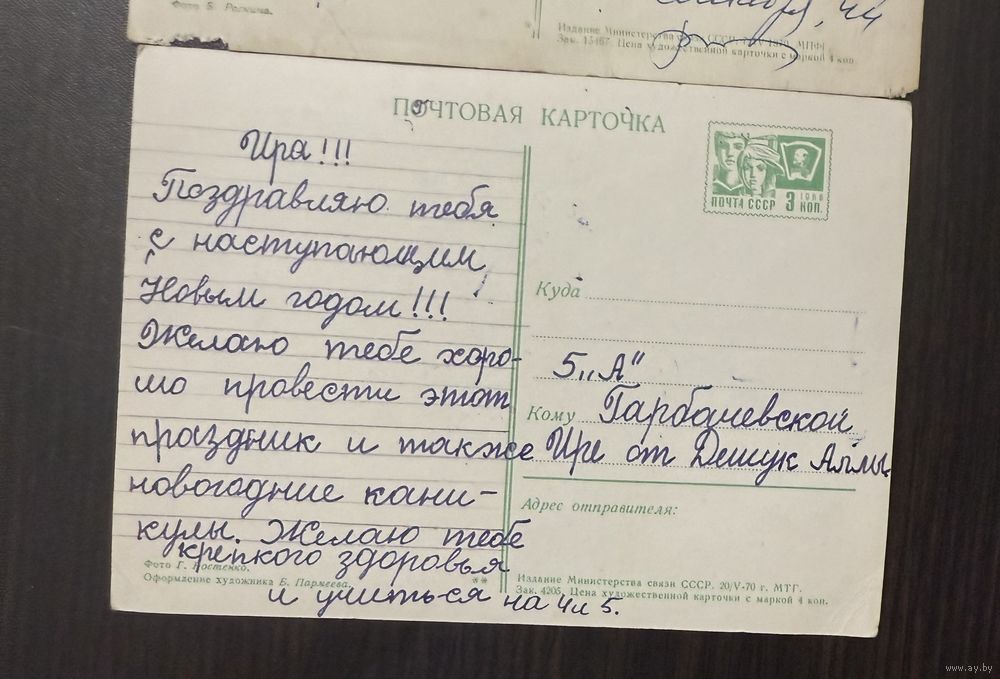 Фото Б.
Издание Министерства
СССР.
1970. МПФГ
Зак. 15467. Цена художественной карточки с маркой 4 коп.
ПОЧТОВАЯ КАРТОЧКА
ПОЧТА СССР 3 КОП.
1966
Ира!!!
Поздравляю тебя
с наступающим
Новым годом!!!
Желаю тебе хоро-
шо провести этот
праздник и также
новогодние кани-
кулы. Желаю тебе
крепкого здоровья
и учиться на 4 и 5.
Куда
5 „А"
Кому Гарбачевской
Ире от Дешук Аллы.
Адрес отправителя:
Фото Г. Костенко.
Оформление художника Б. Пармеева.
**
Издание Министерства связи СССР. 20/V-70 г. МТГ.
Зак. 4205. Цена художественной карточки с маркой 4 коп.
www.ay.by